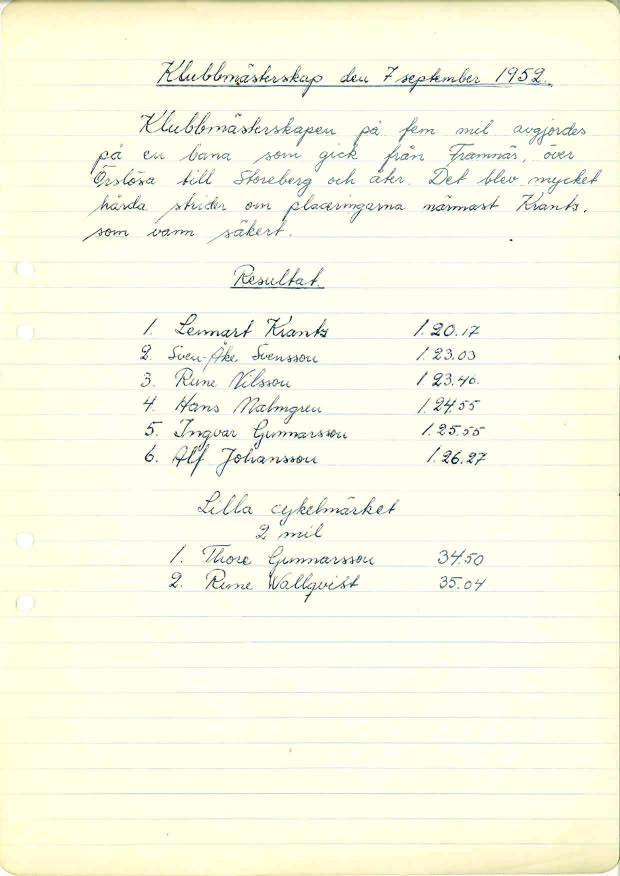 Klubbmästerskap den 7 september 1952.
Klubbmästerskapen på fem mil avgjordes
på en bana som gick från Trammär, över
Örslösa till Storeberg och åter. Det blev mycket
hårda strider om placeringarna närmast Krantz,
som vann säkert.
Resultat.
1. Lennart Krantz 1.20.17
2. Sven-Åke Svensson 1.23.03
3. Rune Nilsson 1.23.40.
4. Hans Malmgren 1.24.55
5. Ingvar Gunnarsson 1.25.55
6. Alf Johansson 1.26.27
Lilla cykelmärket
2 mil
1. Thore Gunnarsson 34.50
2. Rune Wallqvist 35.04